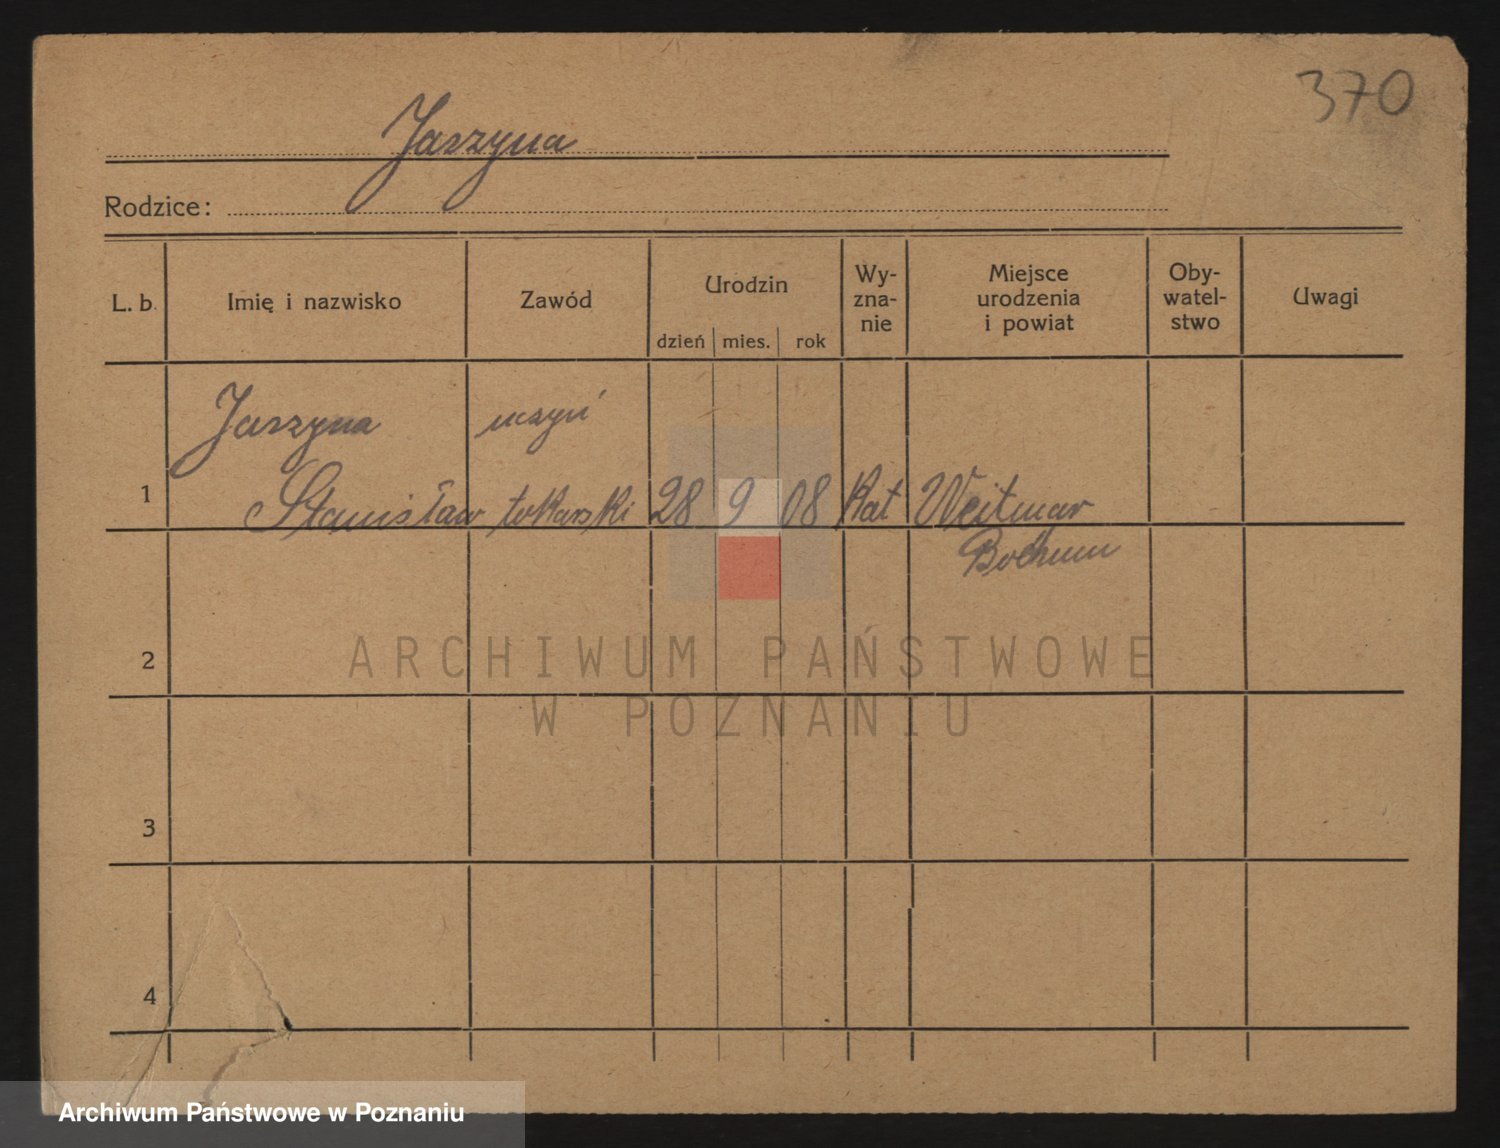 370
Jaszyna
Rodzice:
L. b.
Imię i nazwisko
Zawód
Urodzin
dzień mies. rok
Wy-
zna-
nie
Miejsce
urodzenia
i powiat
Oby-
watel-
stwo
Uwagi
Jaszyna uczyń
1 Stanisław tokarski 28 9 08 Kat Weitmar
Bochum
2
ARCHIWUM PAŃSTWOWE
W POZNANIU
3
4
Archiwum Państwowe w Poznaniu